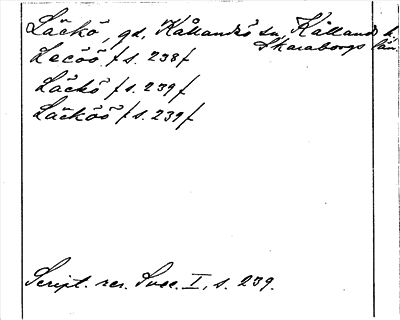 Läckö, gd, Kållandsö sn, Kållands h.
Skaraborgs län
Lecöö /s. 238/
Läckö /s. 239/
Läcköö /s. 239/
Script. rer. Svec. I, s. 239.